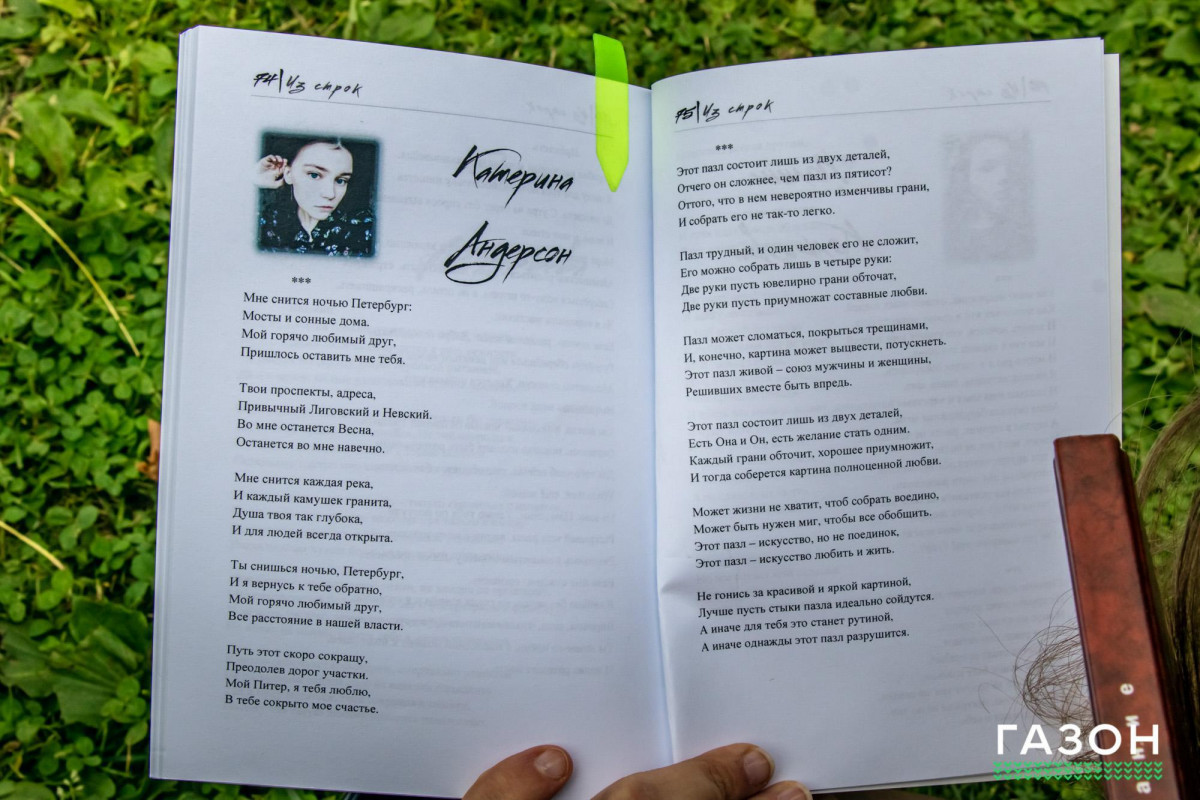 74|Из строк
Катерина
Андерсон
***
Мне снится ночью Петербург:
Мосты и сонные дома.
Мой горячо любимый друг,
Пришлось оставить мне тебя.
Твои проспекты, адреса,
Привычный Лиговский и Невский.
Во мне останется Весна,
Останется во мне навечно.
Мне снится каждая река,
И каждый камушек гранита,
Душа твоя так глубока,
И для людей всегда открыта.
Ты снишься ночью, Петербург,
И я вернусь к тебе обратно,
Мой горячо любимый друг,
Все расстояние в нашей власти.
Путь этот скоро сокращу,
Преодолев дорог участки.
Мой Питер, я тебя люблю,
В тебе сокрыто мое счастье.
75|Из строк
***
Этот пазл состоит лишь из двух деталей,
Отчего он сложнее, чем пазл из пятисот?
Оттого, что в нем невероятно изменчивы грани,
И собрать его не так-то легко.
Пазл трудный, и один человек его не сложит,
Его можно собрать лишь в четыре руки:
Две руки пусть ювелирно грани обточат,
Две руки пусть приумножат составные любви.
Пазл может сломаться, покрыться трещинами,
И, конечно, картина может выцвести, потускнеть.
Этот пазл живой – союз мужчины и женщины,
Решивших вместе быть впредь.
Этот пазл состоит лишь из двух деталей,
Есть Она и Он, есть желание стать одним.
Каждый грани обточит, хорошее приумножит,
И тогда соберется картина полноценной любви.
Может жизни не хватит, чтоб собрать воедино,
Может быть нужен миг, чтобы все обобщить.
Этот пазл – искусство, но не поединок,
Этот пазл – искусство любить и жить.
Не гонись за красивой и яркой картиной,
Лучше пусть стыки пазла идеально сойдутся.
А иначе для тебя это станет рутиной,
А иначе однажды этот пазл разрушится.
ГАЗОН